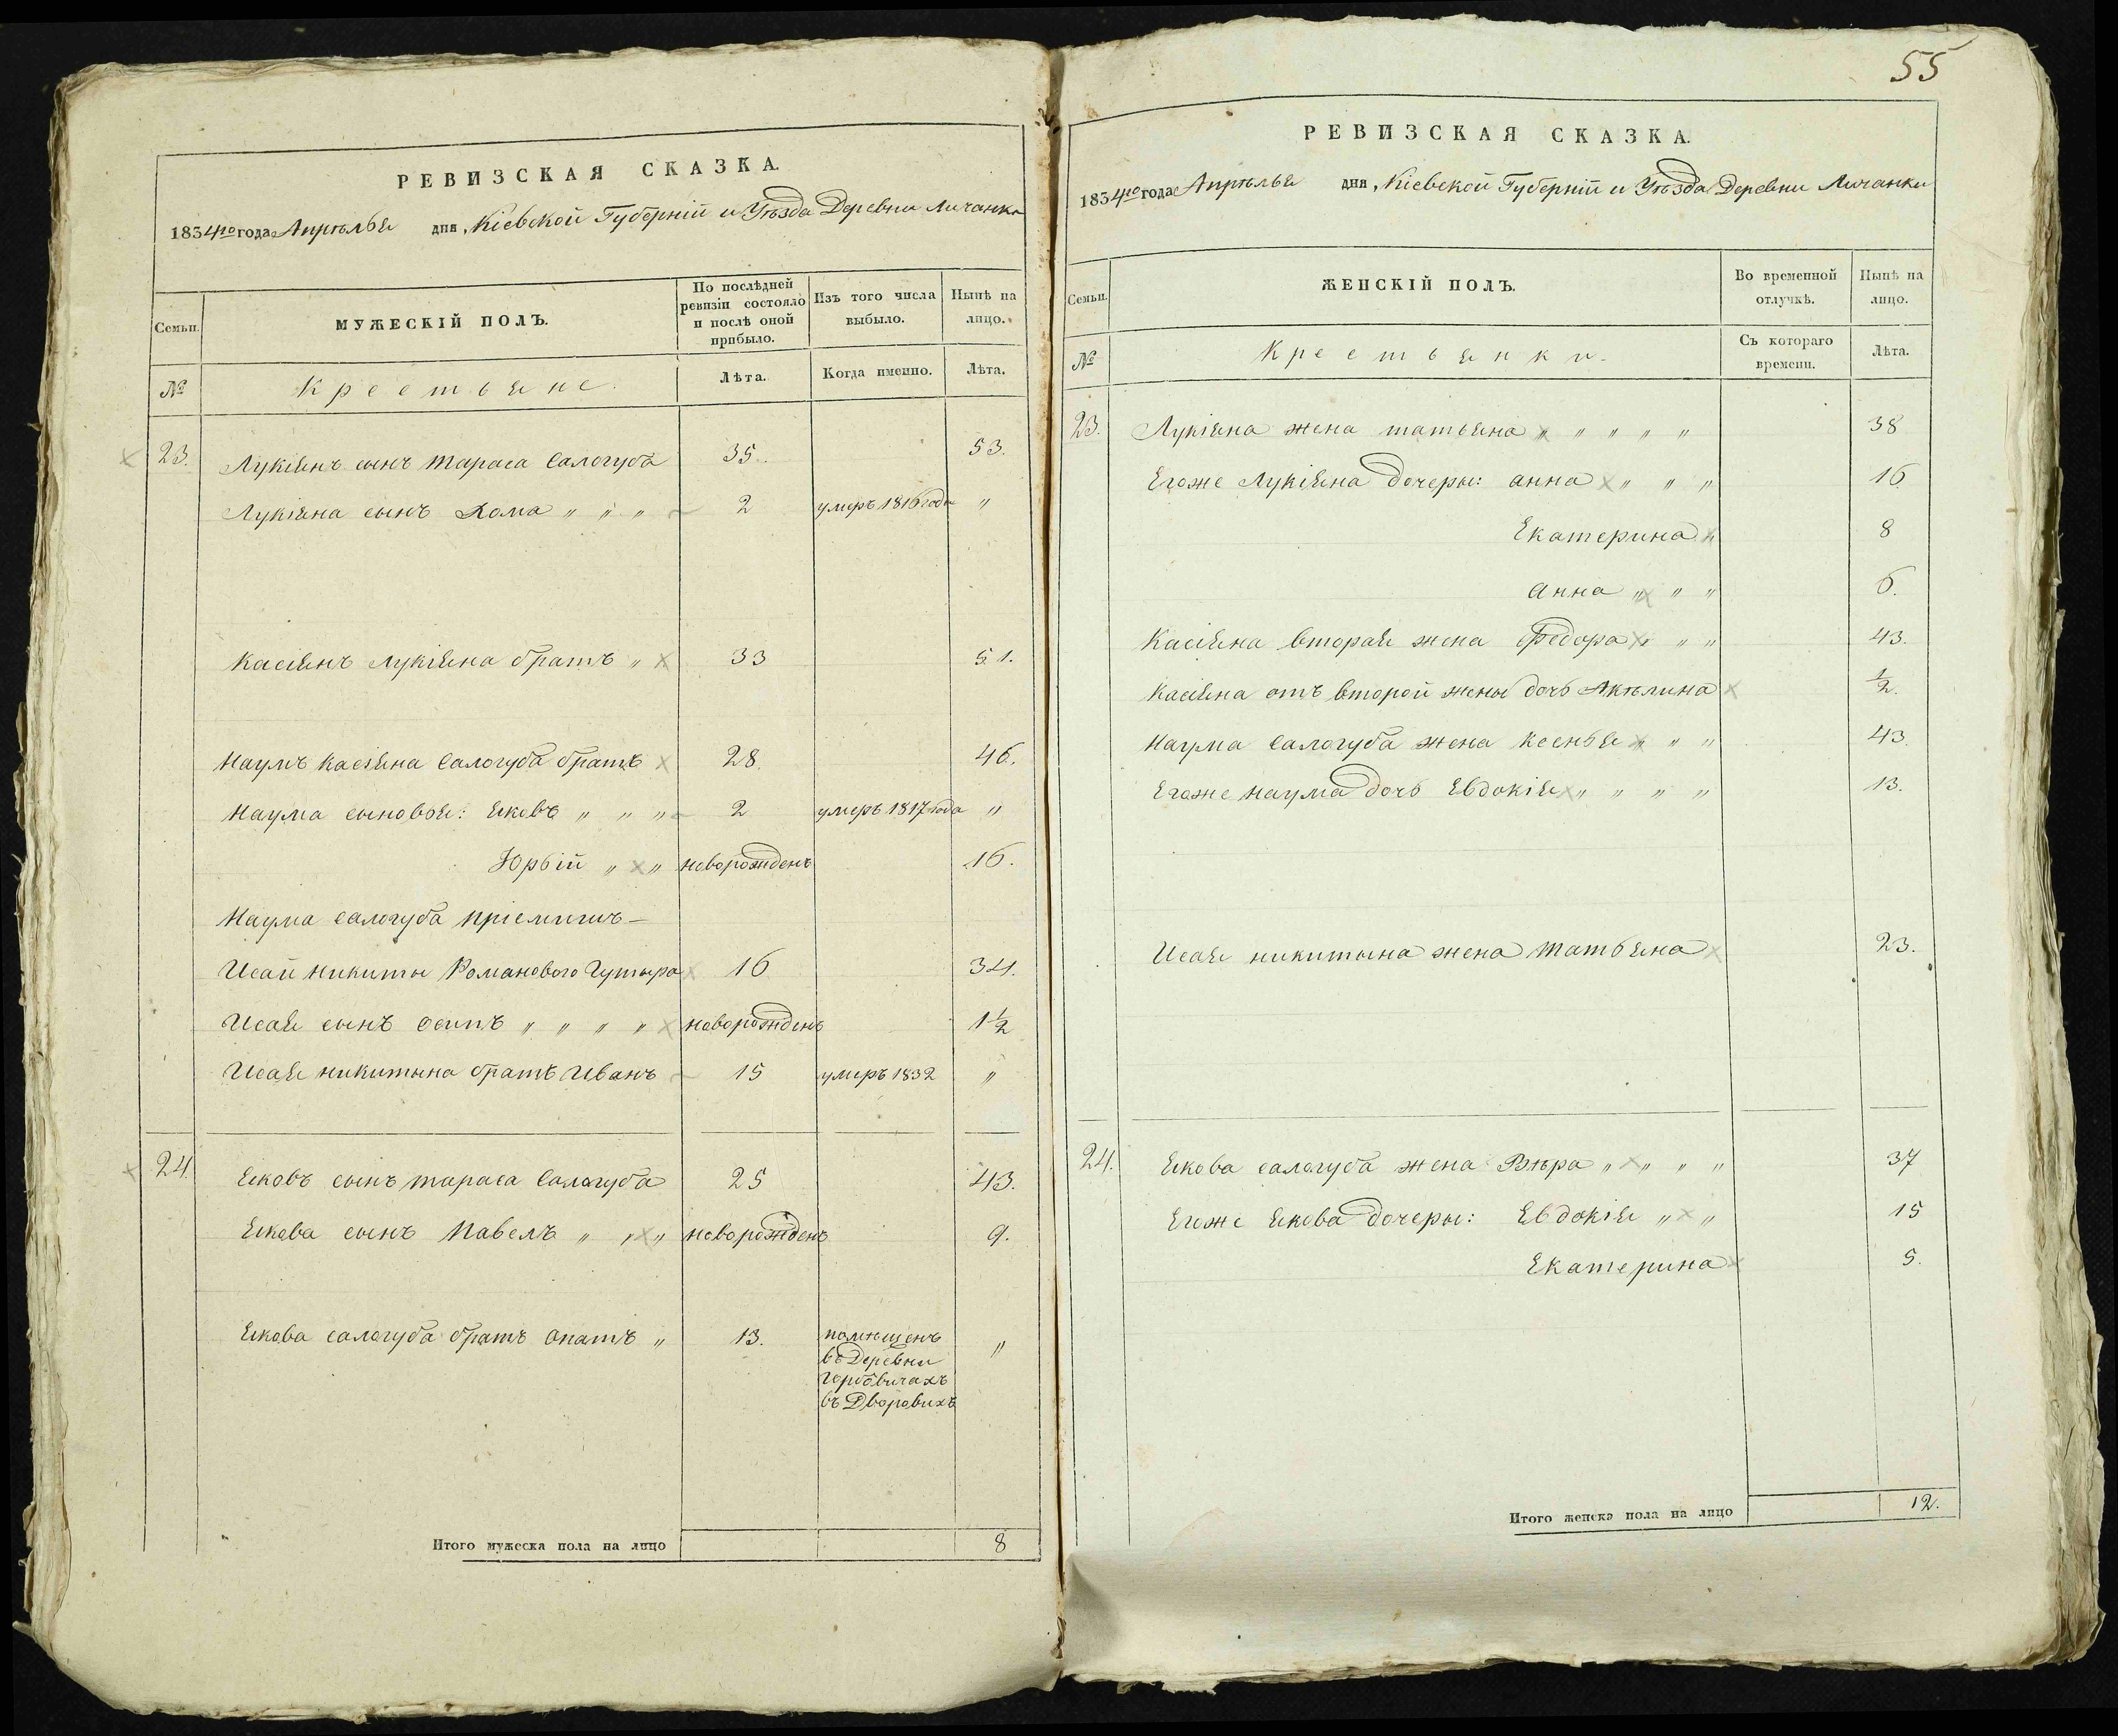 РЕВИЗСКАЯ СКАЗКА.
1834го года Апрѣлья дня, Кіевской Губерніи и Уѣзда Деревни Личанки
Семьи. МУЖЕСКІЙ ПОЛЪ. По послѣдней ревизіи состояло и послѣ оной прибыло. Изъ того числа выбыло. Нынѣ на лицо.
№ Крестьяне. Лѣта. Когда именно. Лѣта.
23. Лукіянъ сынъ Тараса Салогуба 35. 53.
Лукіяна сынъ Хома „ „ „ 2 умеръ 1816 года „
Касіянъ Лукіяна братъ „ 33 51.
Наумъ Касіяна Салогуба братъ 28. 46.
Наума сыновья: Яковъ „ „ „ 2 умеръ 1817 года „
Юрьій „ „ новорожденъ 16.
Наума салогуба пріемишъ —
Исай Никиты Романового Чутыра 16 34.
Исая сынъ осипъ „ „ „ „ новорожденъ 1½
Исая никитына братъ Иванъ 15 умеръ 1832 „
24. Яковъ сынъ тараса Салогуба 25 43.
Якова сынъ Павелъ „ „ „ новорожденъ 9.
Якова салогуба братъ Опатъ „ 13. помѣщенъ „
въ Деревни
Горбовичахъ
въ Дворовихъ
Итого мужеска пола на лицо 8
55
РЕВИЗСКАЯ СКАЗКА.
1834го года Апрѣлья дня, Кіевской Губерніи и Уѣзда Деревни Личанки
Семьи. ЖЕНСКІЙ ПОЛЪ. Во временной отлучкѣ. Нынѣ на лицо.
№ Крестьянки. Съ котораго времени. Лѣта.
23. Лукіяна жена татьяна „ „ „ „ „ 38
Егоже Лукіяна дочеры: анна „ „ „ 16
Екатерина „ 8
анна „ „ „ 6.
Касіяна вторая жена Федора „ „ „ 43.
Касіяна отъ второй жены дочь Акѣлина ½.
Наума Салогуба жена Ксенья „ „ „ 43.
Егоже Наума дочь Евдокія „ „ „ „ 13.
Исая никитына жена татьяна 23.
24. Якова салогуба жена Вѣра „ „ „ „ 37
Егоже Якова дочеры: Евдокія „ „ 15
Екатерина 5.
Итого женска пола на лицо 12.